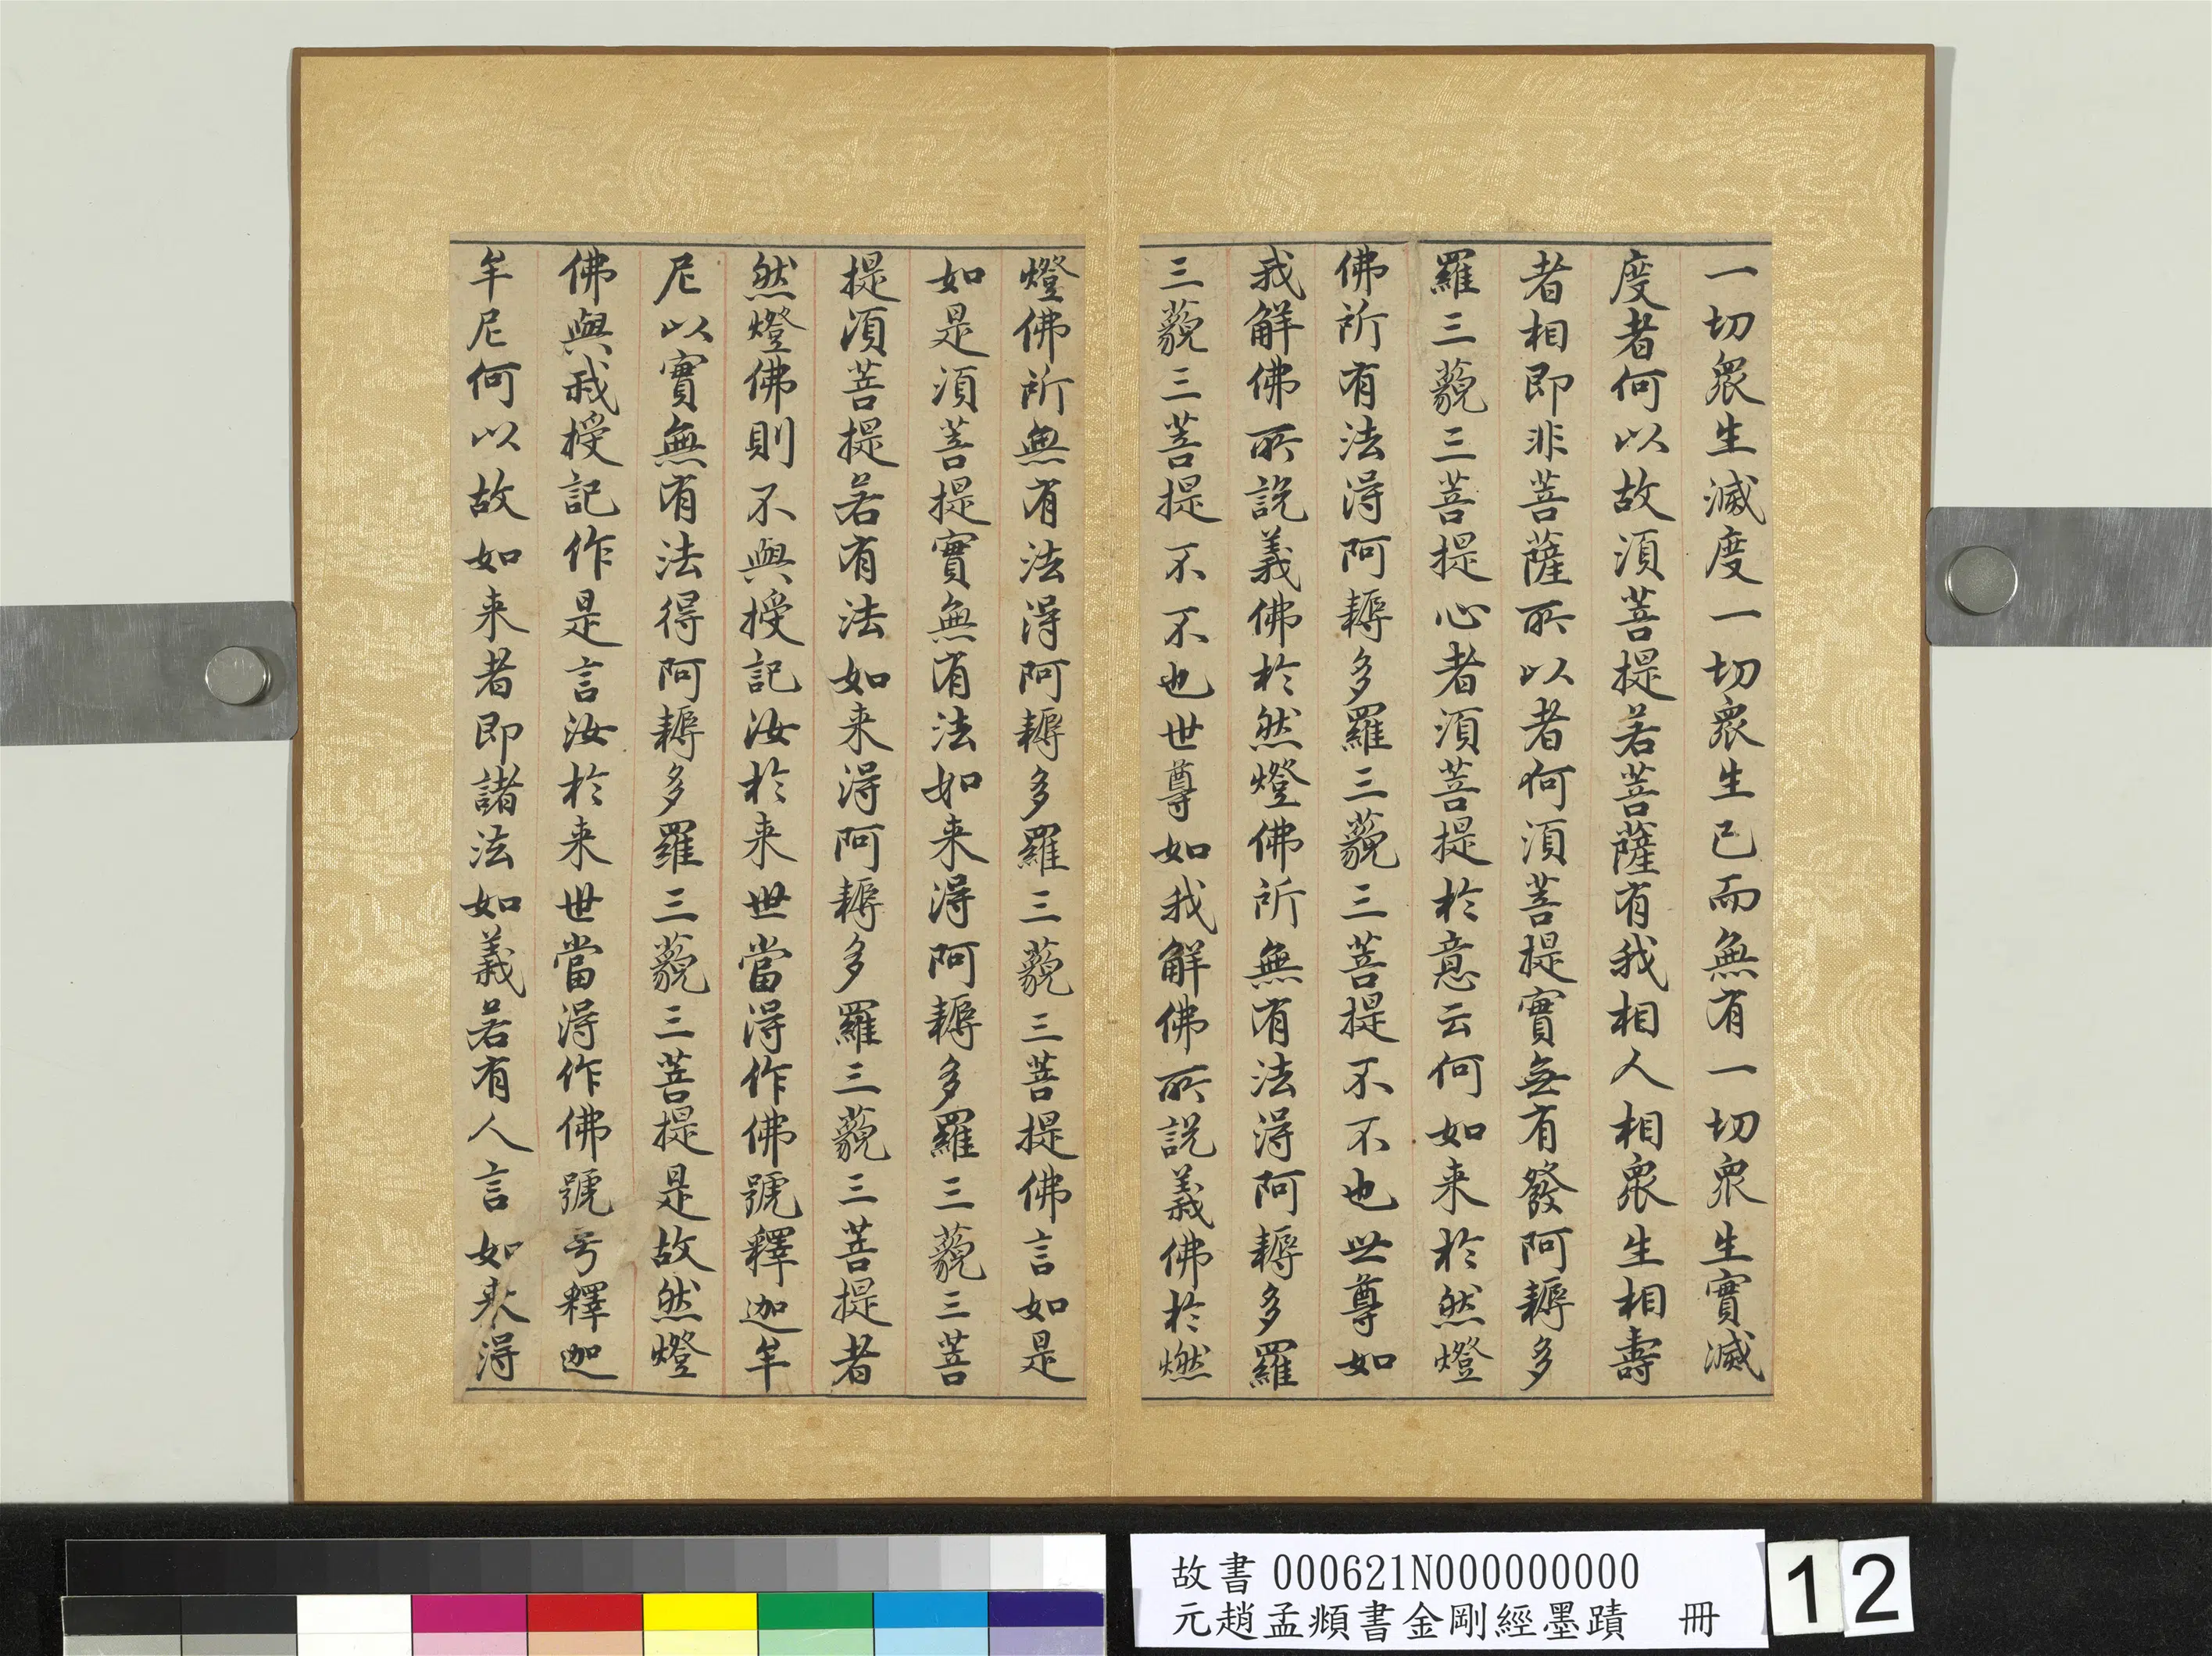 一切衆生滅度一切衆生已而無有一切衆生實滅
度者何以故須菩提若菩薩有我相人相衆生相壽
者相即非菩薩所以者何須菩提實無有發阿耨多
羅三藐三菩提心者須菩提於意云何如来於然燈
佛所有法得阿耨多羅三藐三菩提不不也世尊如
我解佛所說義佛於然燈佛所無有法得阿耨多羅
三藐三菩提不不也世尊如我解佛所說義佛於燃
燈佛所無有法得阿耨多羅三藐三菩提佛言如是
如是須菩提實無有法如来得阿耨多羅三藐三菩
提須菩提若有法如来得阿耨多羅三藐三菩提者
然燈佛則不與授記汝於来世當得作佛號釋迦牟
尼以實無有法得阿耨多羅三藐三菩提是故然燈
佛與我授記作是言汝於来世當得作佛號号釋迦
牟尼何以故如来者即諸法如義若有人言如來得
故書 000621N000000000
元趙孟頫書金剛經墨蹟 冊
12